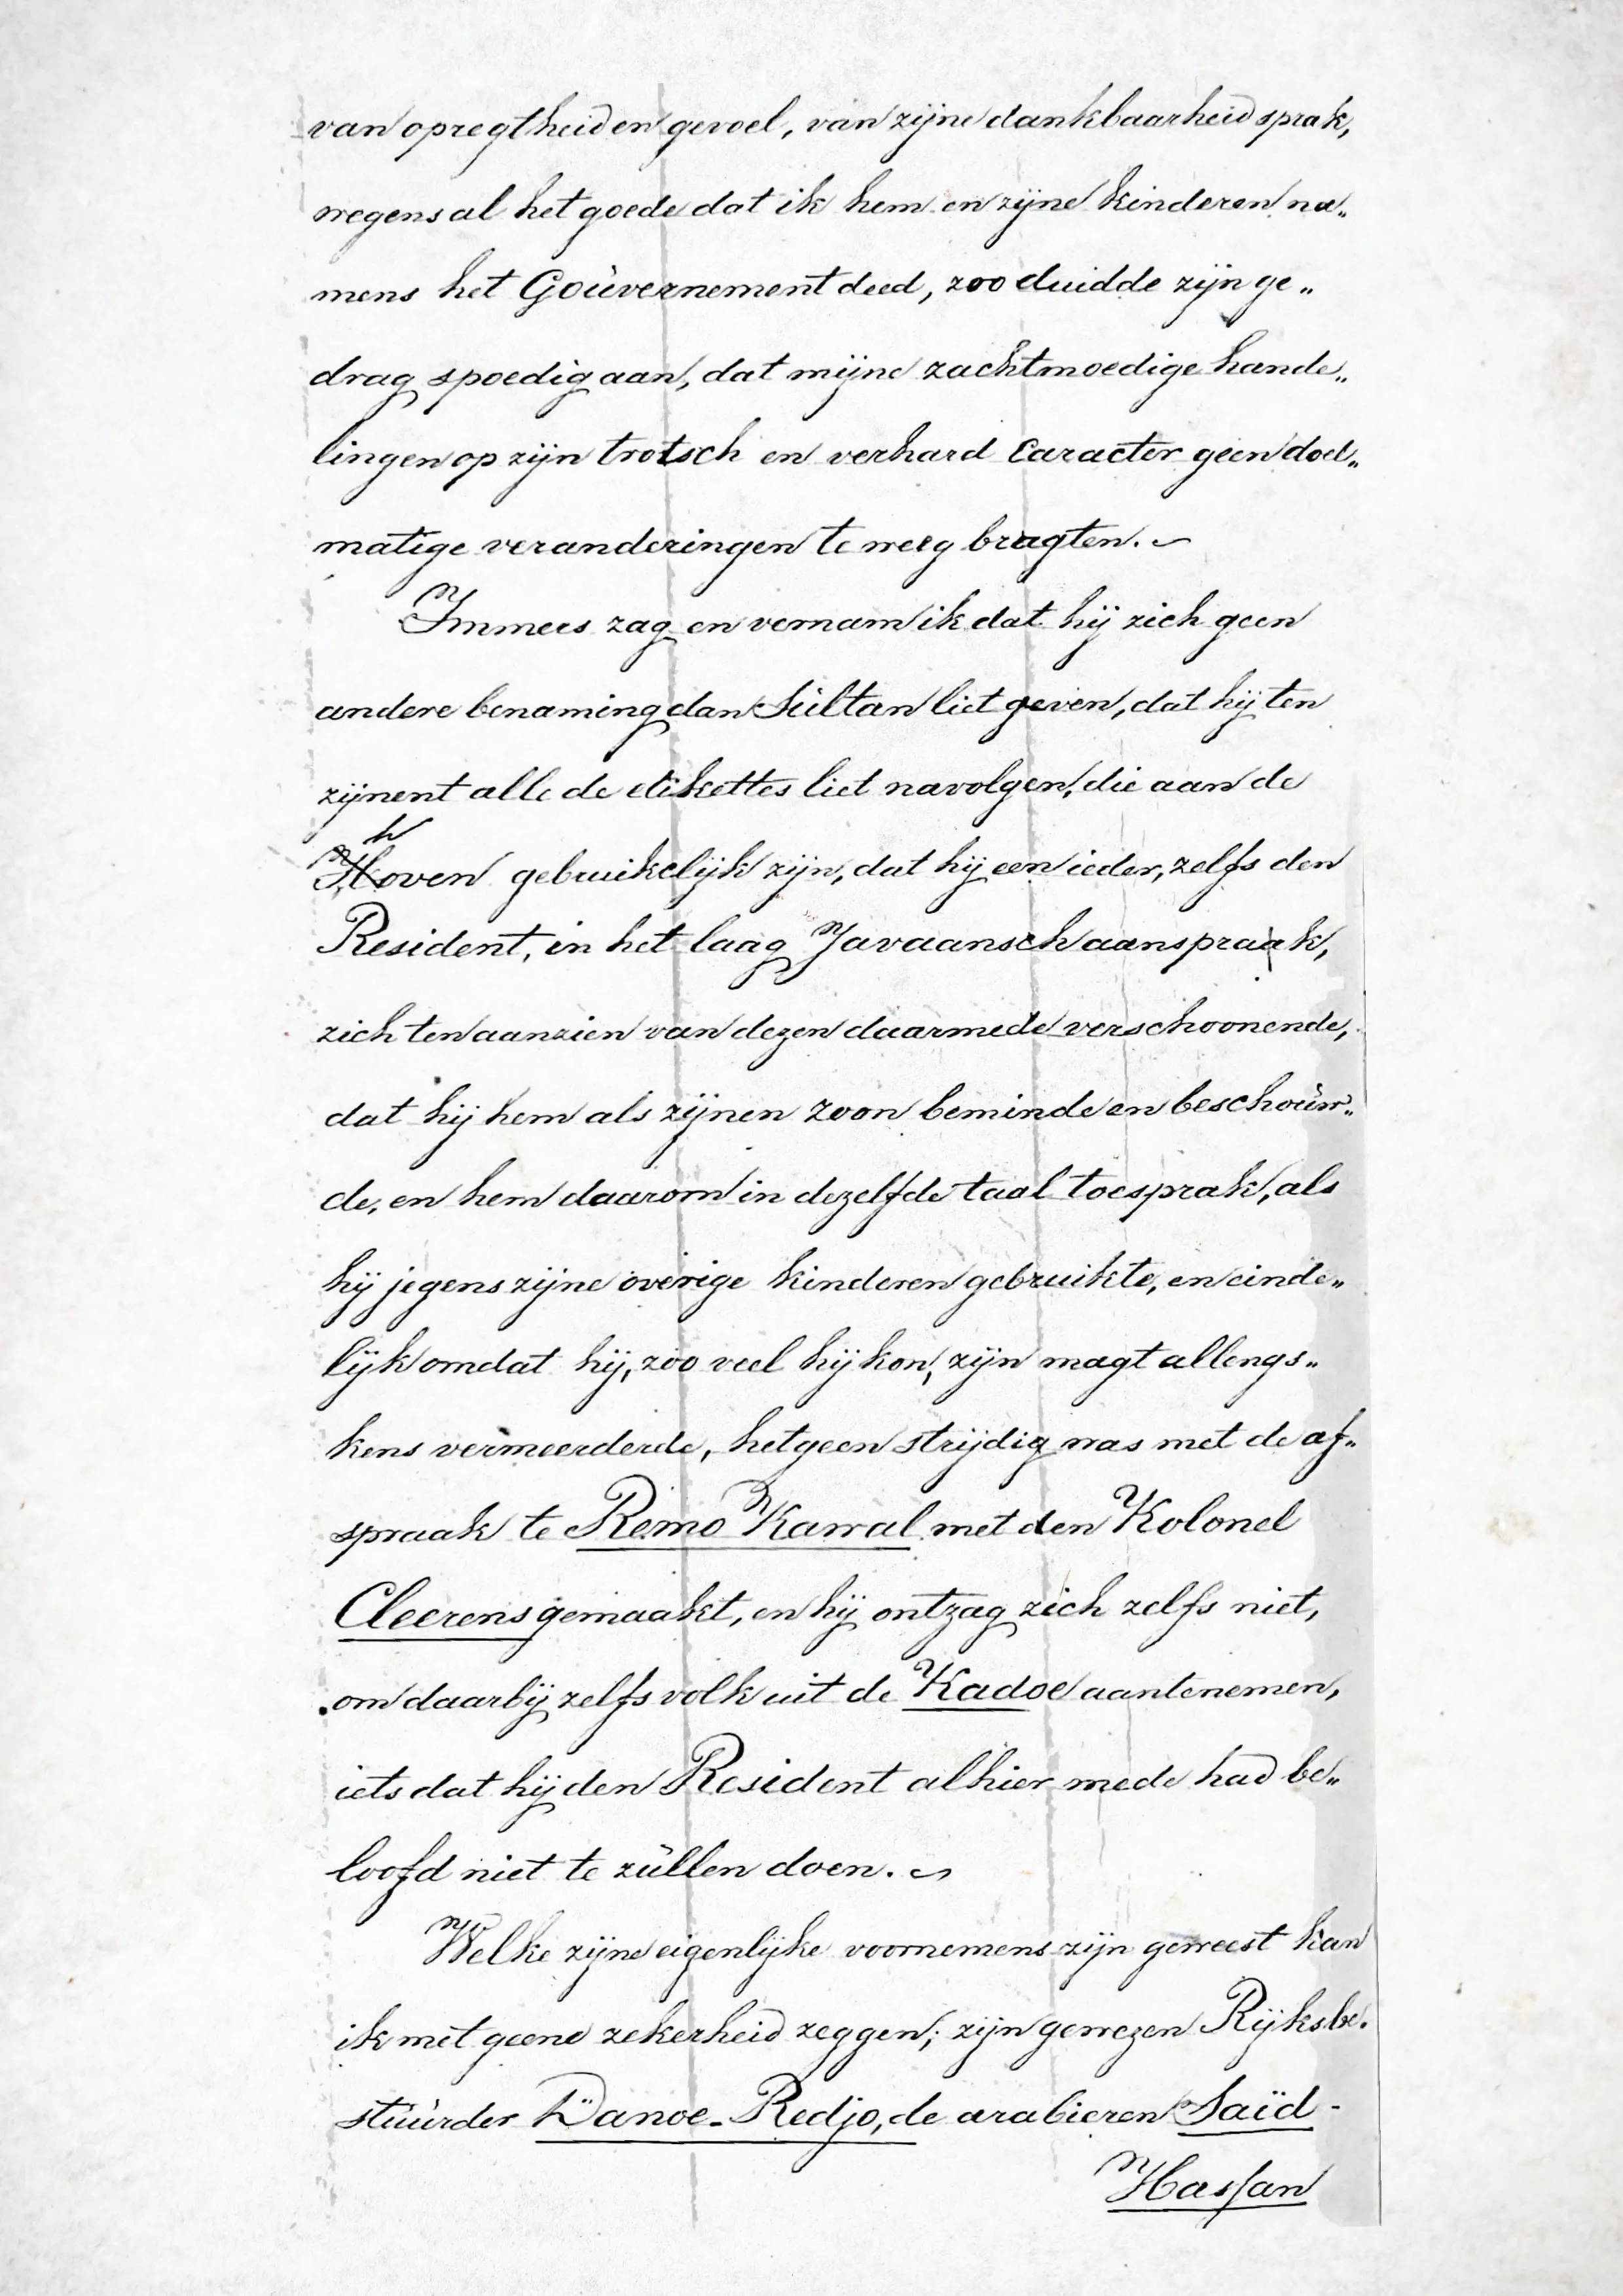 van opregtheid en gevoel, van zijne dankbaarheid sprak,
wegens al het goede dat ik hem en zijne kinderen na„
mens het Goùvernement deed, zoo duidde zijn ge„
drag spoedig aan, dat mijne zachtmoedige hande„
lingen op zijn trotsch en verhard Caracter geen doel„
matige veranderingen te weeg bragten. ~
Immers zag en vernam ik dat hij zich geen
andere benaming dan Sùltan liet geven, dat hij ten
zijnent alle de etikettes liet navolgen, die aan de
h
Hoven gebruikelijk zijn, dat hij een ieder, zelfs den
Resident, in het laag Javaansch aanspraak,
zich ten aanzien van dezen daarmede verschoonende,
dat hij hem als zijnen zoon beminde en beschoùw„
de, en hem daarom in dezelfde taal toesprak, als
hij jegens zijne overige kinderen gebruikte, en einde„
lijk omdat hij, zoo veel hij kon, zijn magt allengs„
kens vermeerderde, hetgeen strijdig was met de af„
spraak te Remo Kawal met den Kolonel
Cleerens gemaakt, en hij ontzag zich zelfs niet,
om daarbij zelfs volk uit de Kadoe aantenemen,
iets dat hij den Resident alhier mede had be„
loofd niet te zùllen doen. ~
Welke zijne eigenlijke voornemens zijn geweest kan
ik met geene zekerheid zeggen; zijn gewezen Rijksbe.
stùùrder Danoe-Redjo, de arabieren Saïd-
Hassan